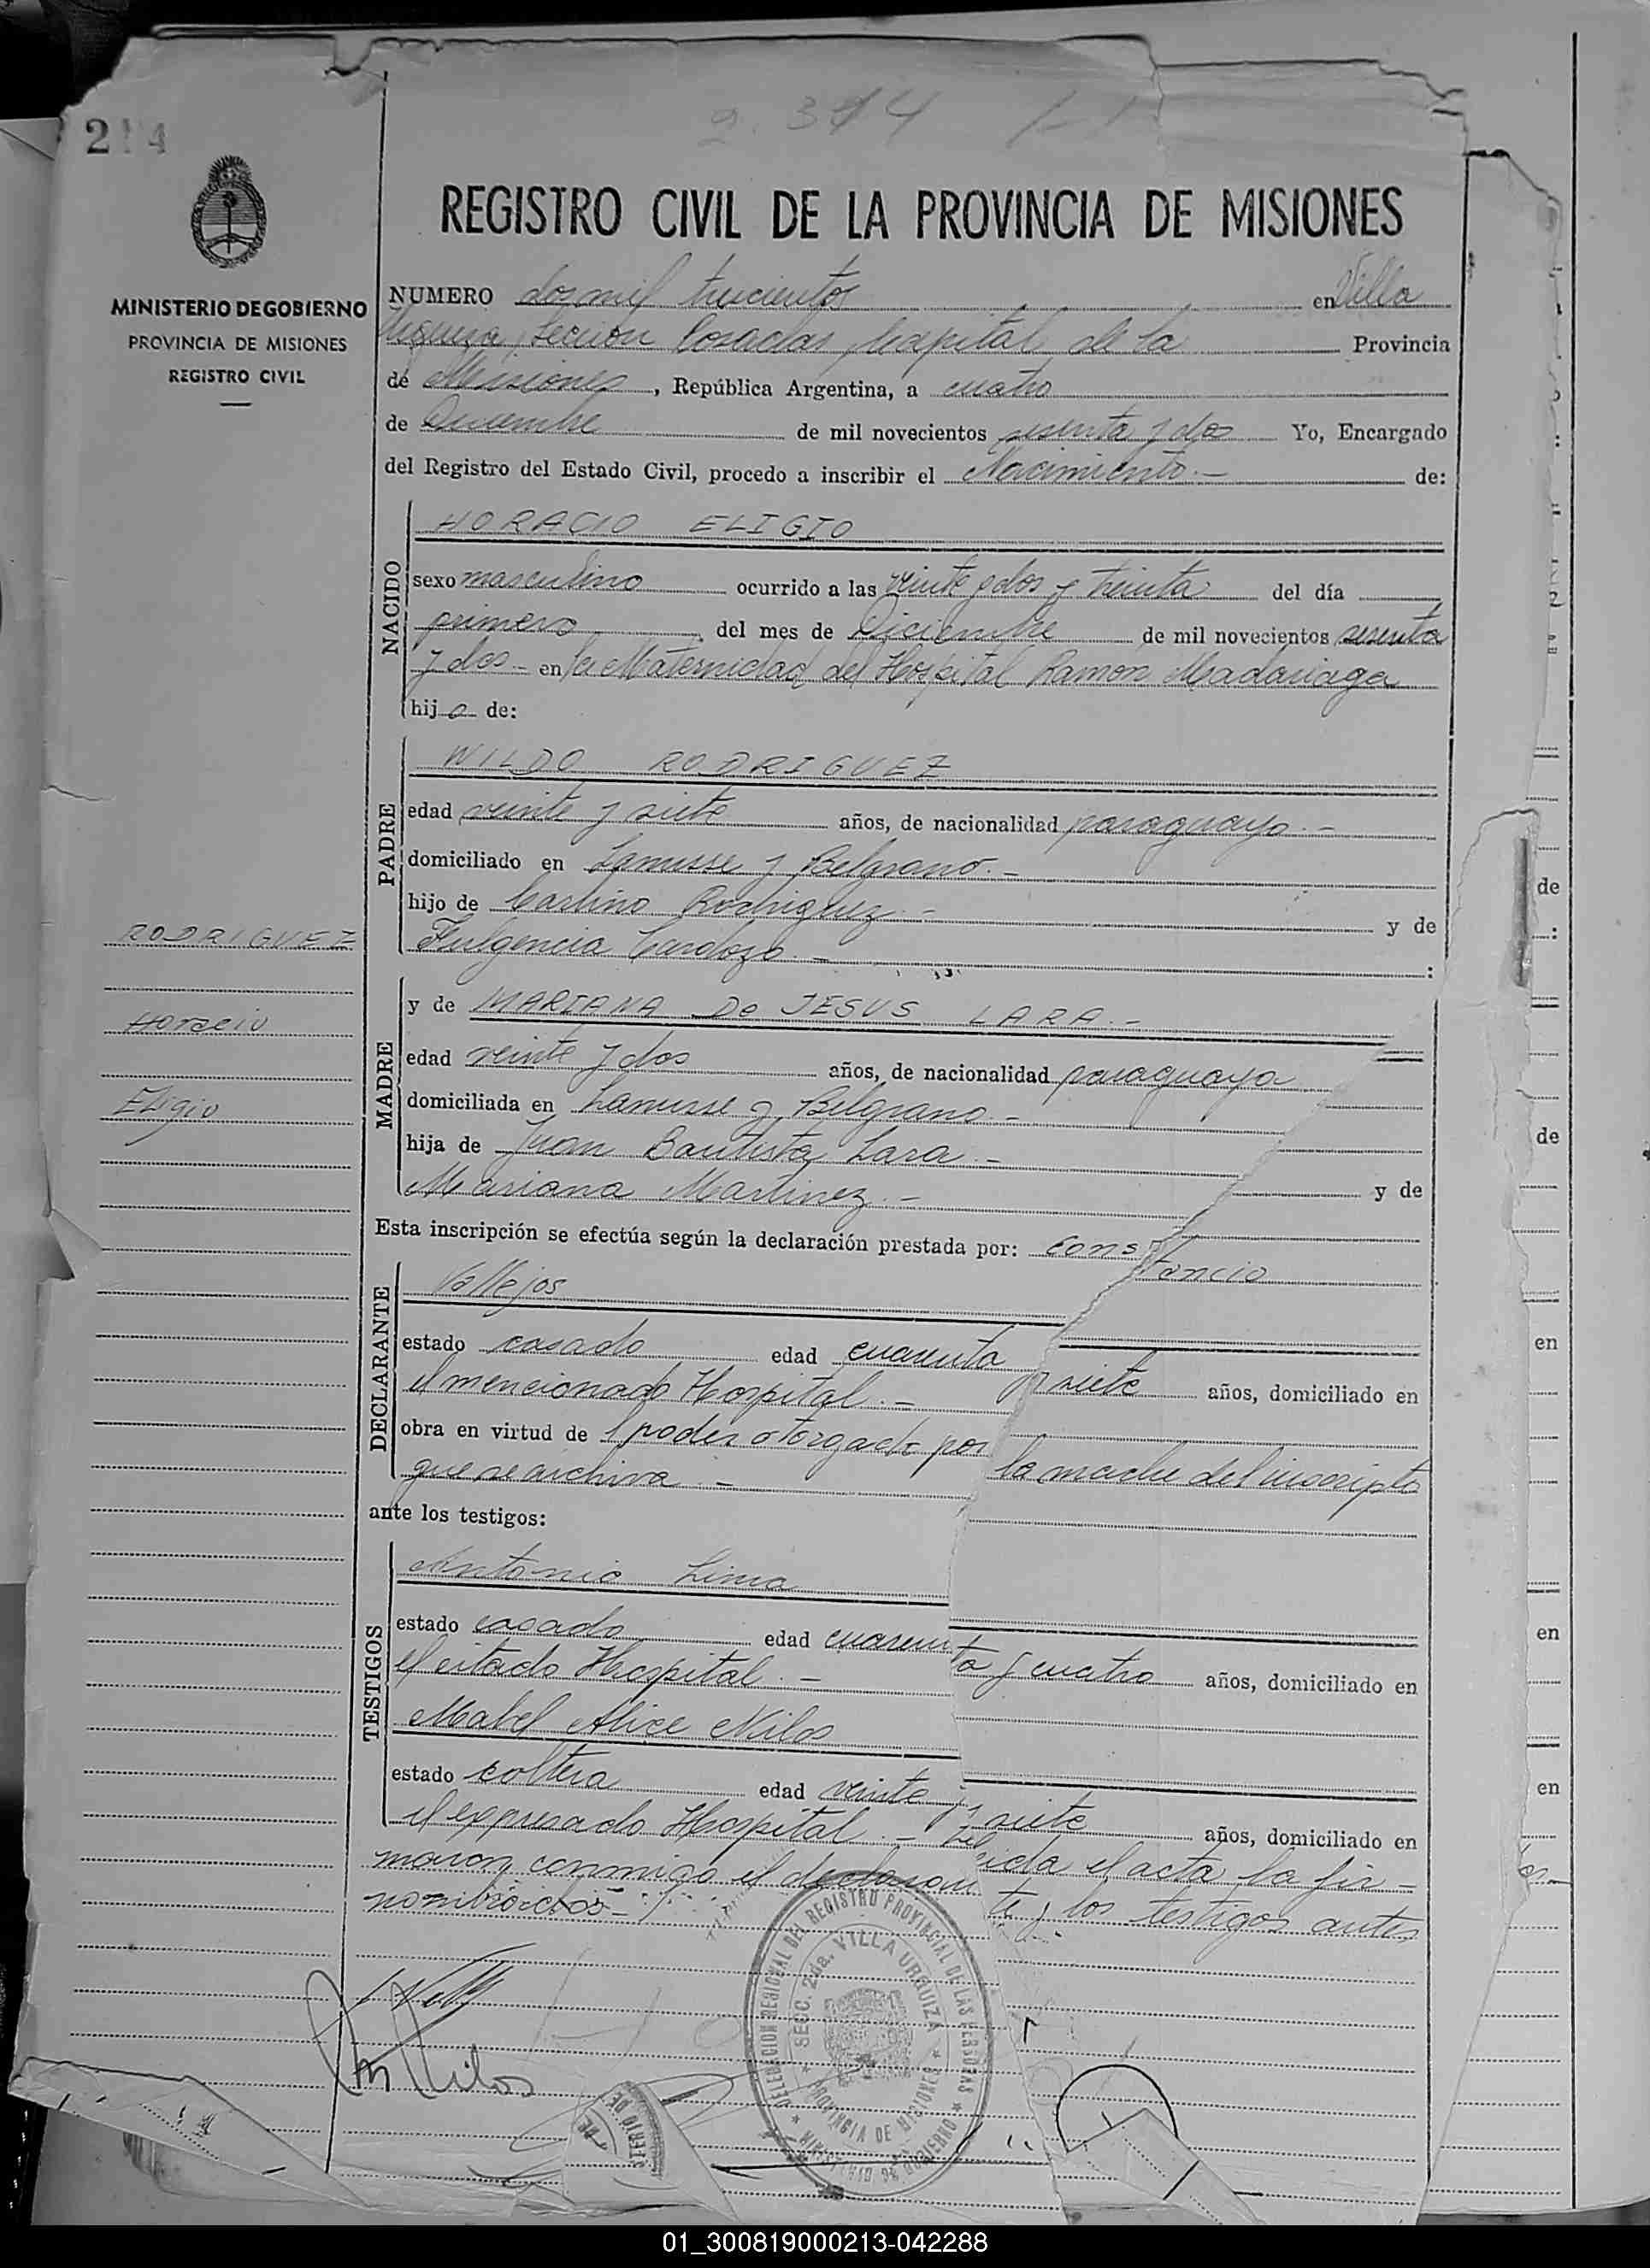 214
REGISTRO CIVIL DE LA PROVINCIA DE MISIONES
MINISTERIO DE GOBIERNO
PROVINCIA DE MISIONES
REGISTRO CIVIL
NUMERO dos mil trescientos en Villa
Urquiza, Sección Posadas, Capital de la Provincia
de Misiones, República Argentina, a cuatro
de Diciembre de mil novecientos sesenta y dos Yo, Encargado
del Registro del Estado Civil, procedo a inscribir el Nacimiento.- de:
NACIDO
HORACIO ELIGIO
sexo masculino ocurrido a las veinte y dos y treinta del día
primero del mes de Diciembre de mil novecientos sesenta
y dos - en la Maternidad del Hospital Ramon Madariaga
hijo de:
PADRE
WILDO RODRIGUEZ
edad veinte y siete años, de nacionalidad paraguayo.-
domiciliado en Lanusse y Belgrano.-
hijo de Rodriguez.- y de
Fulgencia Cardozo.-
RODRIGUEZ
Horacio
Eligio
MADRE
y de MARIANA De JESUS LARA.-
edad veinte y dos años, de nacionalidad paraguaya
domiciliada en Lanusse y Belgrano.-
hija de Juan Bautista Lara.-
Mariana Martinez.- y de
Esta inscripción se efectúa según la declaración prestada por: Constancio
DECLARANTE
Vallejos
estado casado edad cuarenta y siete años, domiciliado en
el mencionado Hospital.-
obra en virtud de 1 poder otorgado por la madre del inscripto
que se archiva.-
ante los testigos:
TESTIGOS
Antonio Lima
estado casado edad cuarenta y cuatro años, domiciliado en
el citado Hospital.-
Mabel Alice Nilos
estado soltera edad veinte y siete años, domiciliado en
el expresado Hospital.- Leida el acta la fir-
maron conmigo el declarante y los testigos antes
nombrados-
DELEGACION REGIONAL DEL REGISTRO PROVINCIAL DE LAS PERSONAS
SECC. 2da. VILLA URQUIZA
PROVINCIA DE MISIONES
MINISTERIO DE GOBIERNO
de
de
en
en
en
01_300819000213-042288